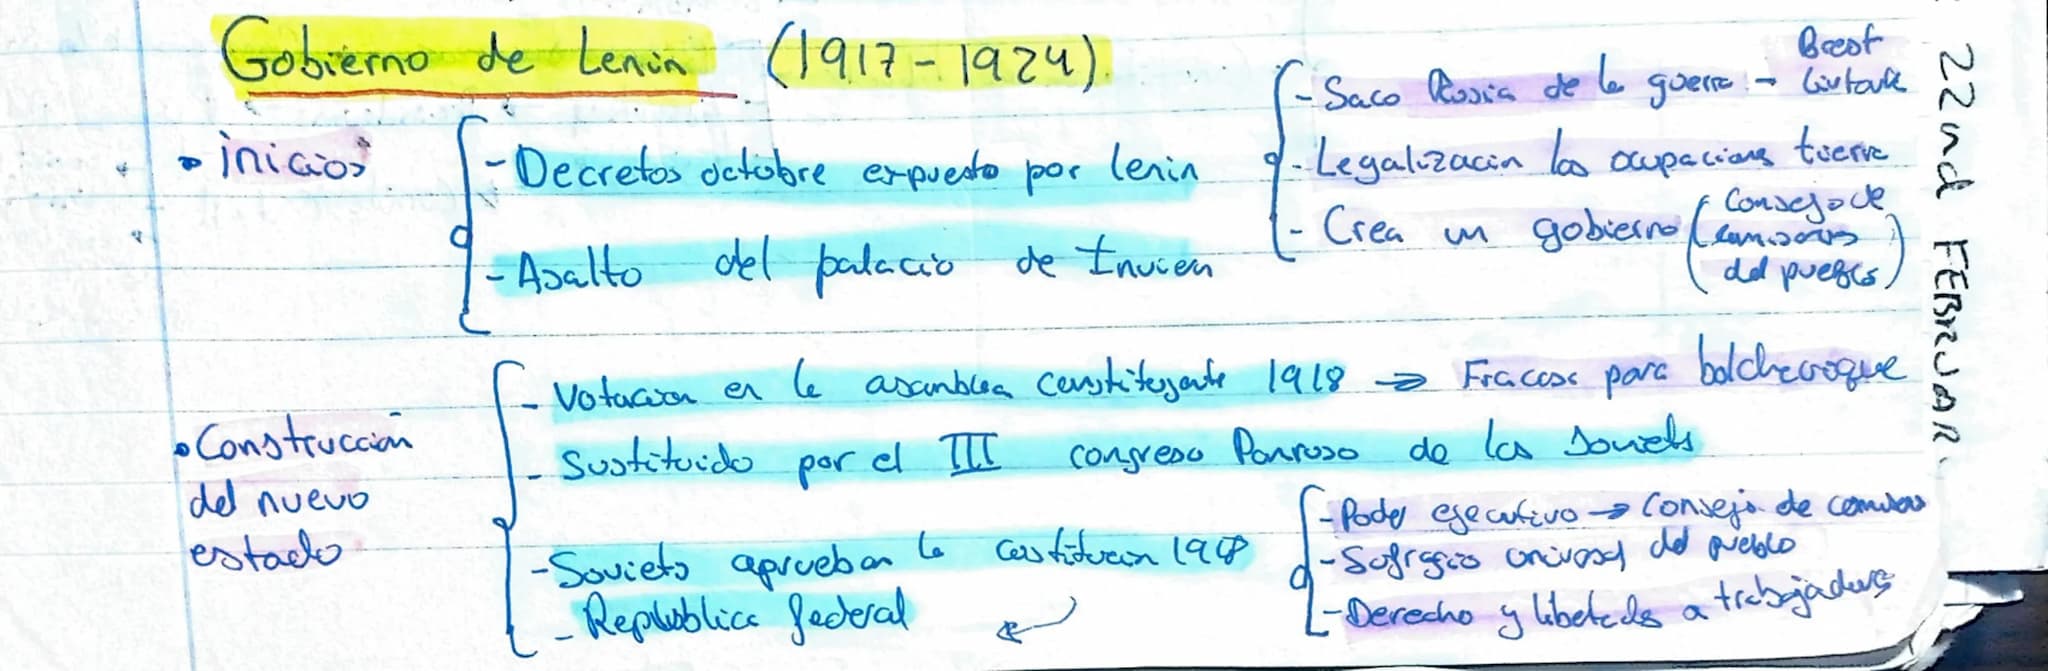 Gobierno de Lenin (1917-1924)
• inicios
- Decretos octubre expuesto por lenin
- Asalto del palacio de Invien
- Saco Rusia de la guerra → Brest
- Legalización las ocupacions tierra
- Crea un gobierno (Consejo de
comisarios
del pueblo)
• Construcción
del nuevo
estado
- Votacion en la asamblea constituyente 1918 → Fracaso para bolchevique
- Sustituido por el III congreso Panruso de los Soviets
- Soviets aprueban la constitucion 1918
- Repubblica federal
- Poder ejecutivo → Consejo de comisarios
del pueblo
- Sufragio universal
- Derecho y libertads a trabajadores
22nd FEBRUAR.